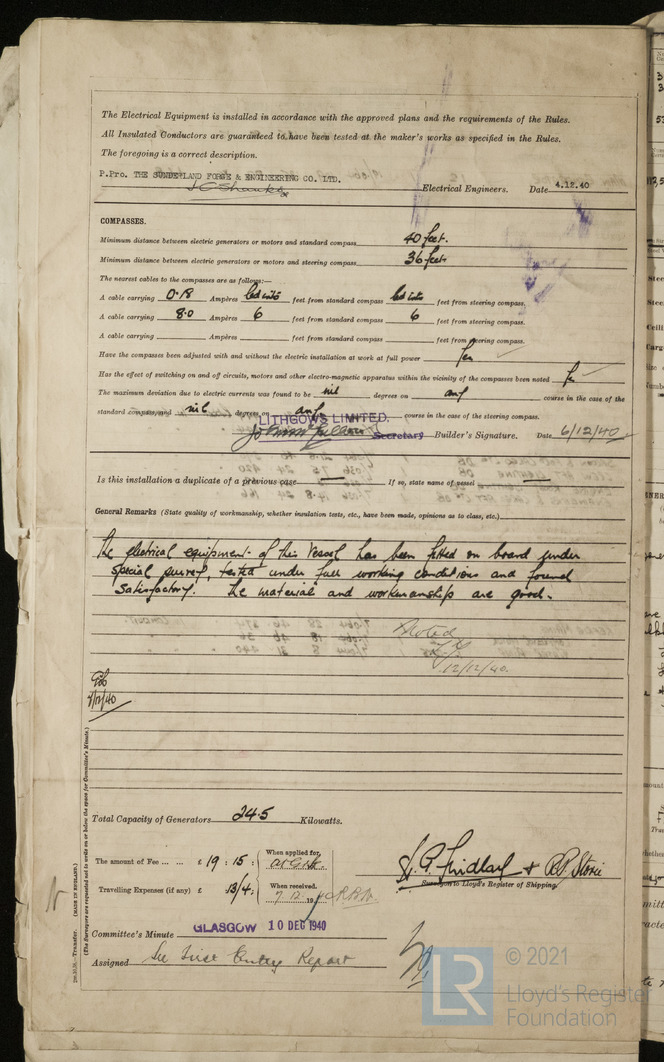 The Electrical Equipment is installed in accordance with the approved plans and the requirements of the Rules.
All Insulated Conductors are guaranteed to have been tested at the maker's works as specified in the Rules.
The foregoing is a correct description.
P.Pro. THE SUNDERLAND FORGE & ENGINEERING CO. LTD.
Electrical Engineers. Date 4.12.40
COMPASSES.
Minimum distance between electric generators or motors and standard compass 40 feet.
Minimum distance between electric generators or motors and steering compass 36 feet
The nearest cables to the compasses are as follows:—
A cable carrying 0.18 Ampères led into feet from standard compass led into feet from steering compass.
A cable carrying 8.0 Ampères 6 feet from standard compass 6 feet from steering compass.
A cable carrying Ampères feet from standard compass feet from steering compass.
Have the compasses been adjusted with and without the electric installation at work at full power Yes
Has the effect of switching on and off circuits, motors and other electro-magnetic apparatus within the vicinity of the compasses been noted Yes
The maximum deviation due to electric currents was found to be nil degrees on any course in the case of the
standard compass, and nil degrees on any course in the case of the steering compass.
LITHGOWS LIMITED.
Secretary Builder's Signature. Date 6/12/40
Is this installation a duplicate of a previous case — If so, state name of vessel —
General Remarks (State quality of workmanship, whether insulation tests, etc., have been made, opinions as to class, etc.)
The electrical equipment of this Vessel has been fitted on board under
special survey, tested under full working conditions and found
Satisfactory. The material and workmanship are good.
Noted
12/12/40.
Total Capacity of Generators 24.5 Kilowatts.
The amount of Fee ... ... £ 19 : 15 : When applied for,
Travelling Expenses (if any) £ 13/4 : When received,
Surveyor to Lloyd's Register of Shipping.
Committee's Minute GLASGOW 10 DEC 1940
Assigned See First Entry Report
2m.11.38.—Transfer. (MADE IN ENGLAND.)
(The Surveyors are requested not to write on or below the space for Committee's Minute.)
LR
© 2021
Lloyd's Register
Foundation